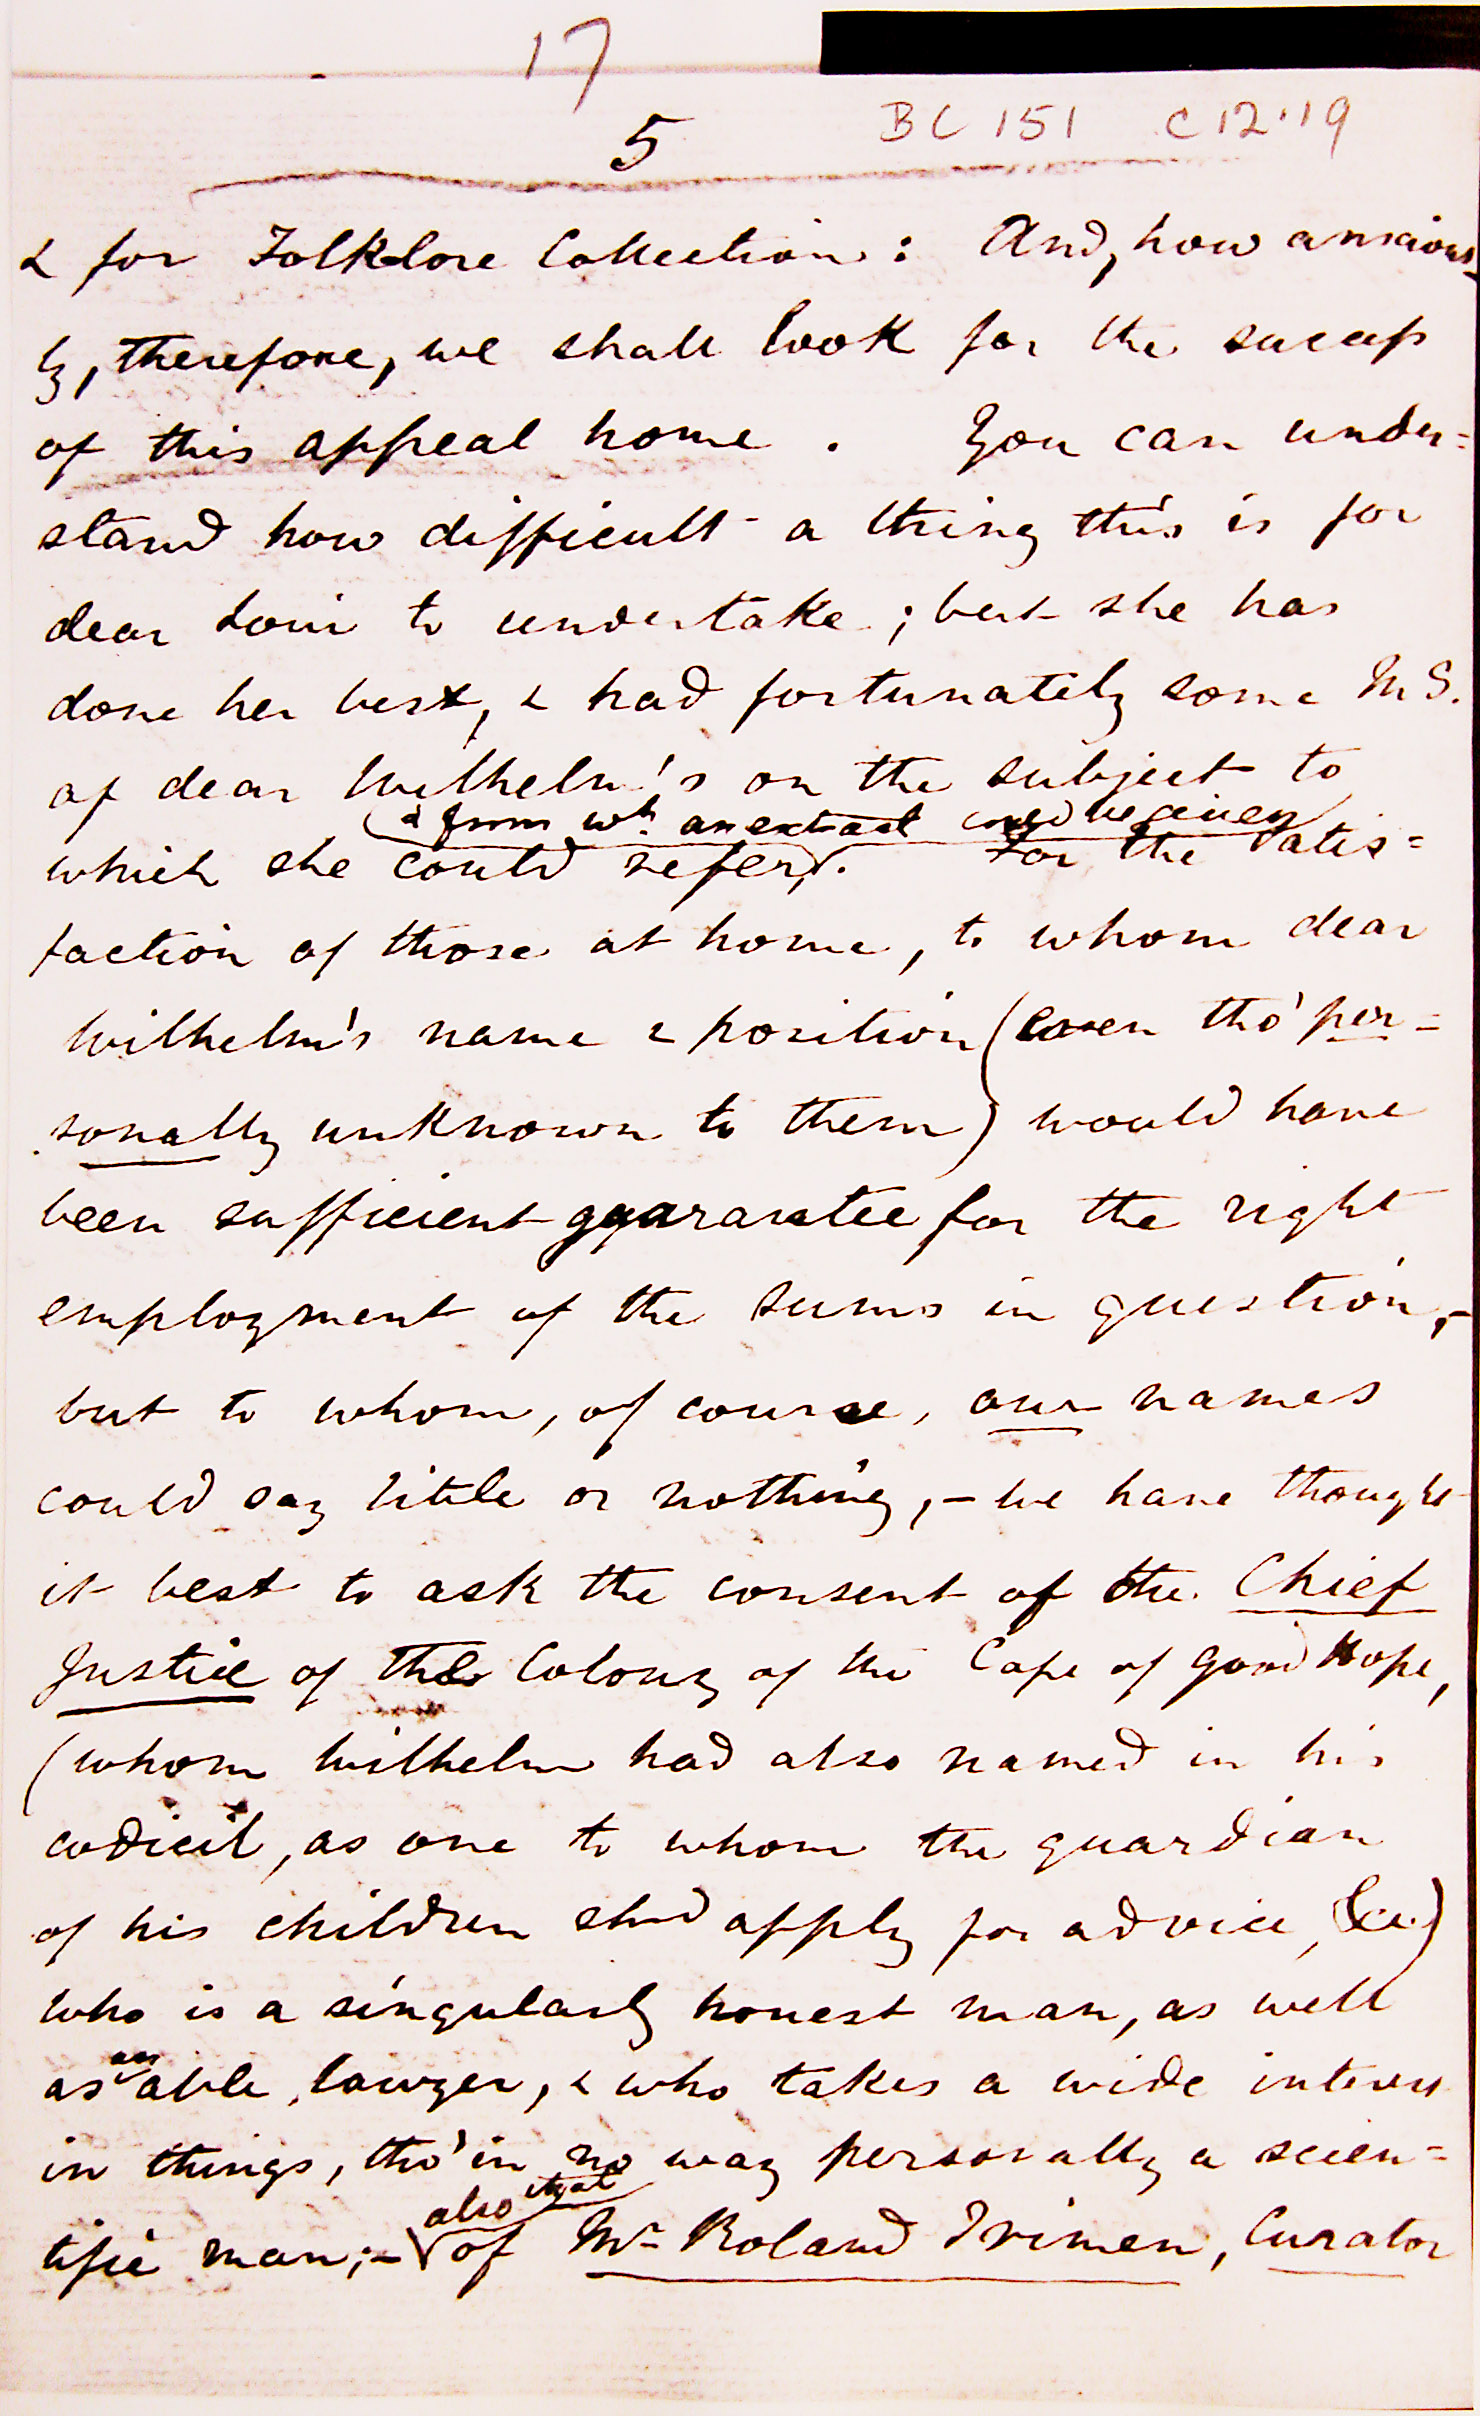 17
5
BC 151 C12.19
& for Folklore Collection: And, how anxious-
ly, therefore, we shall look for the success
of this appeal home. You can under=
stand how difficult a thing this is for
dear Loui to undertake; but she has
done her best, & had fortunately some M S.
of dear Wilhelm's on the subject to
(& from wh. an extract could be given)
which she could refer. For the satis=
faction of those at home, to whom dear
Wilhelm's name & position (even tho' per=
sonally unknown to them) would have
been sufficient guarantee for the right
employment of the sums in question,-
but to whom, of course, our names
could say little or nothing,- we have thought
it best to ask the consent of the Chief
Justice of the Colony of the Cape of Good Hope,
(whom Wilhelm had also named in his
codicil, as one to whom the guardian
of his children shd apply for advice, &c.)
who is a singularly honest man, as well
as an able lawyer, & who takes a wide interest
in things, tho' in no way personally a scien=
also that
tific man;- of Mr Roland Trimen, Curator